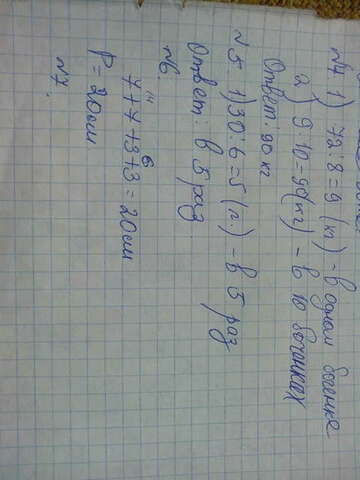 №4 1) 72:8=9 (кг) - в одном боченке
2) 9:10=90(кг) - в 10 боченках
Ответ: 90 кг
№5. 1) 30:6=5 (г.) - в 5 раз
Ответ: в 5 раз
№6.
14 6
7+7+3+3=20см
P=20см
№7.